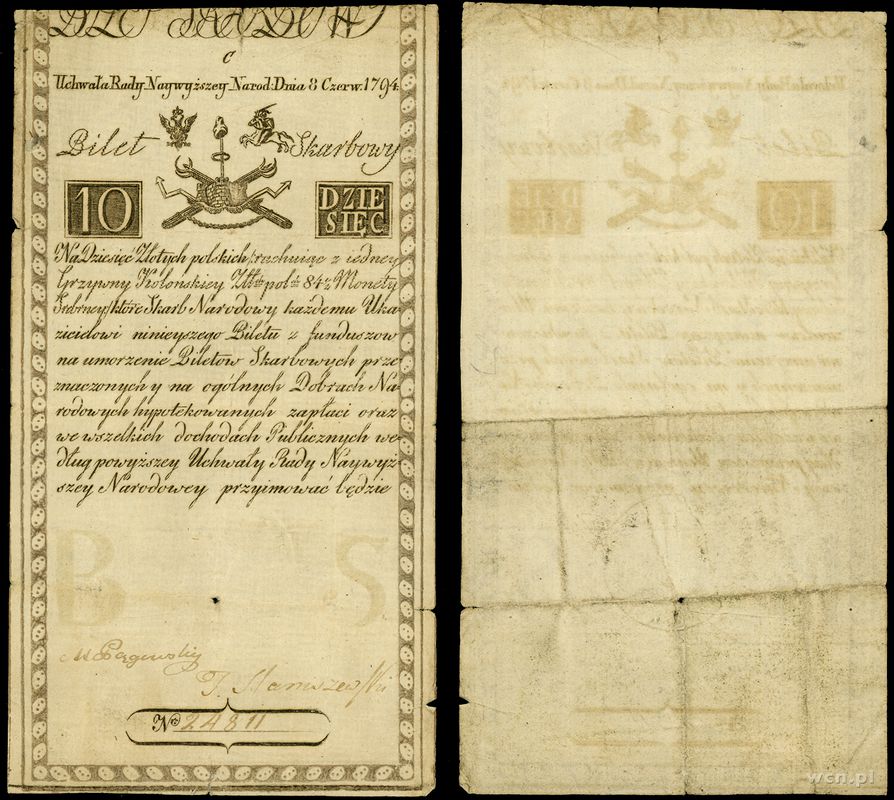 C
Uchwała Rady Naywyższey Narod: Dnia 8 Czerw. 1794.
Bilet Skarbowy
10 DZIE
SIĘC
Na Dziesięć Złotych polskich /rachuiąc z iedney
Grzywny Kolońskiey Złł. pol. 84½ Monety
Srebrney/ które Skarb Narodowy każdemu Uka
zicielowi ninieyszego Biletu z funduszow
na umorzenie Biletow Skarbowych prze
znaczonych y na ogólnych Dobrach Na
rodowych hypotekowanych zapłaci oraz
we wszelkich dochodach Publicznych we
dług powyższey Uchwały Rady Naywyż
szey Narodowey przyimować będzie
B S
Nro 24811
wcn.pl